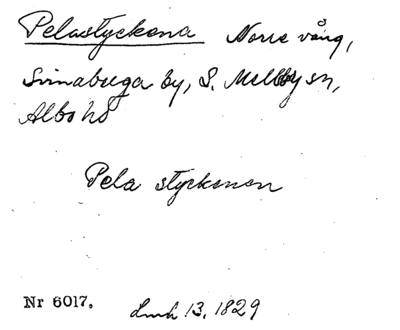 Pelastyckena Norre vång,
Svinabuga by, S. Mellby sn,
Albo hd
Pela styckenon
Nr 6017. Lmh 13, 1829